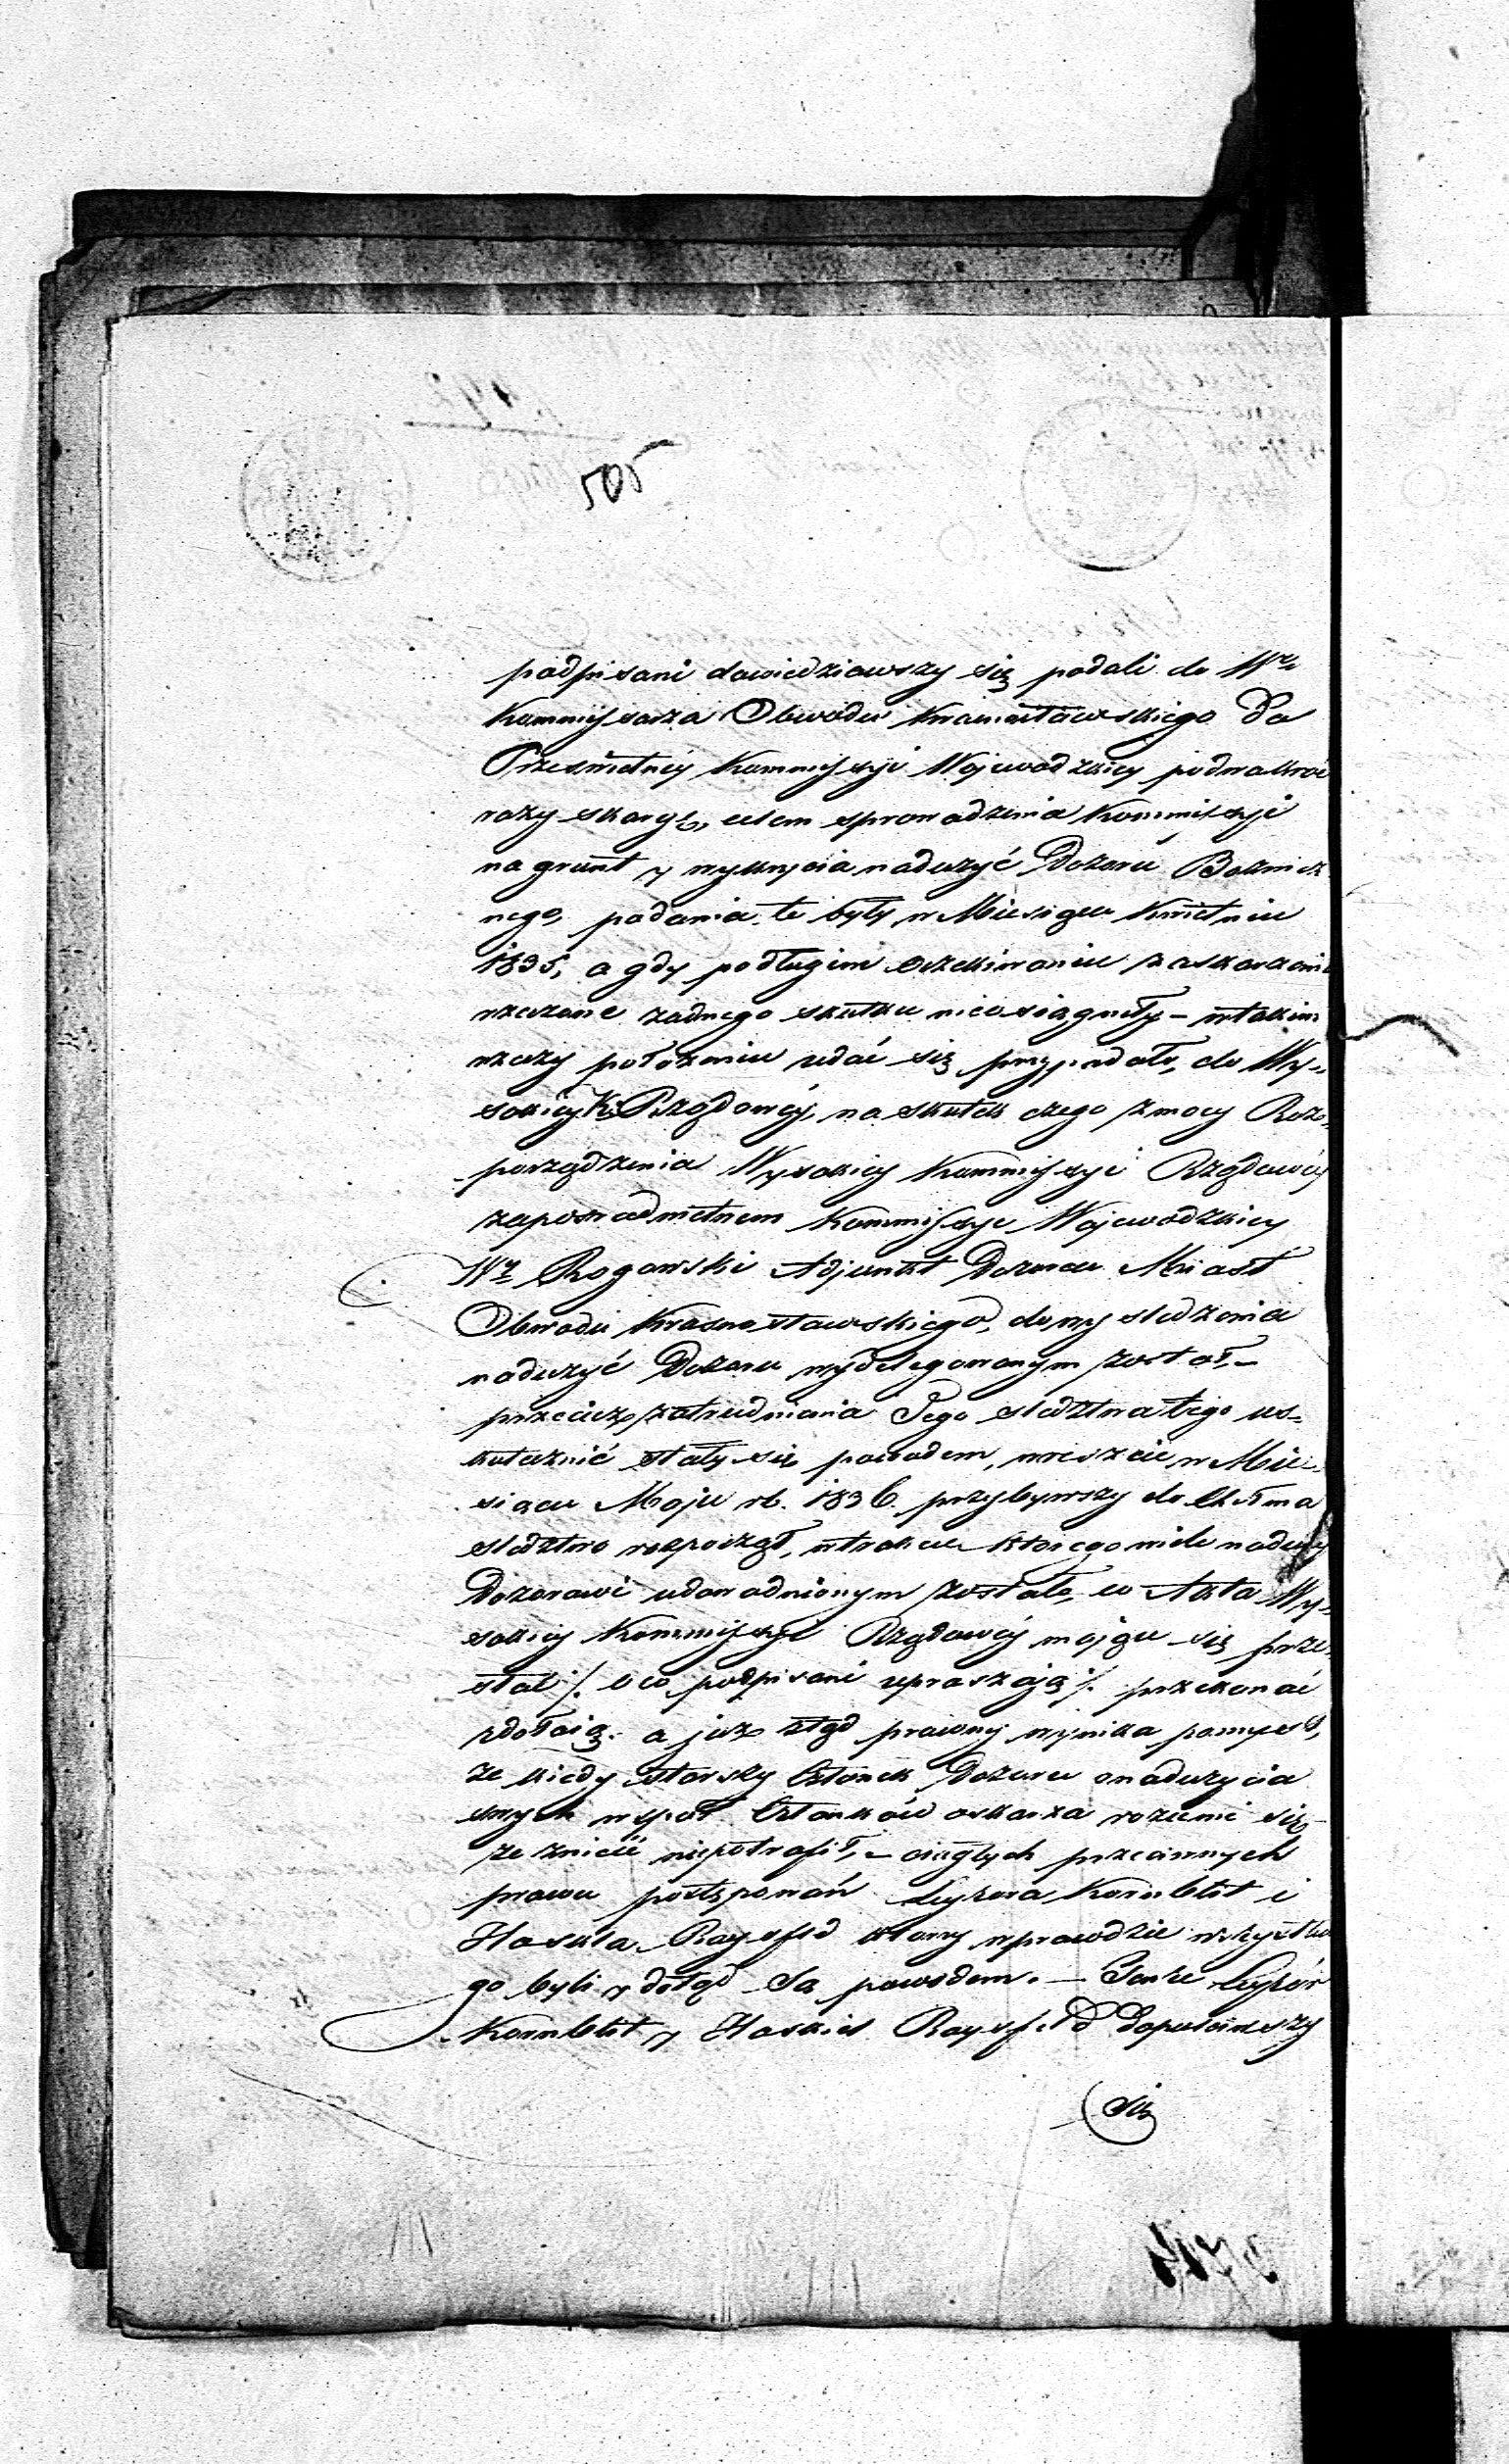 505
podpisani dowiedziawszy się podali do Wgo
Kommissarza Obwodu Krasnostawskiego Da
Prześwietnéy Kommissyi Wojewodzkiey podwakroć
razy skargę, celem sprowadzenia Kommissyi
na grunt y wykrycia nadużyć Dozoru Bożnicz
nego, podania te były w Miesiącu Kwietniu
1835, a gdy podługim oczekiwaniu zaskarżenia
rzeczone żadnego skutku nieosiągneły – wtakim
rzeczy położeniu udać się przypadało, do Wy=
sokiey K. Rządowéy, na skutek czego z mocy Roz=
porządzenia Wysokiey Kommissyi Rządowéy
zapośrednictwem Kommissyi Wojewodzkiey
Wy Rogowski Adjunkt Dozorcu Miast
Obwodu Krasnostawskiego, do wyśledzenia
nadużyć Dozoru wydelegowanym został, –
przecież zatrudnienia Jego śledztwa tego us=
kutecznić stały się powodem, wreszcie w Mie=
siącu Maju rb. 1836. przybywszy do Chełma
śledztwo rozpoczął, wtrakcie którego wiele naduży
Dozorowi udowodnionym zostało, co Akta Wy=
sokiey Kommissyi Rządowéy mające się prze=
słać /. o co podpisani upraszają ./ przekonać
zdołaią. a już ztąd prawny wynika pomysł,
że kiedy starszy Członek Dozoru o nadużycia
swych wspoł Członków oskarża rozumie się
że znieść niepotrafił, – ciągłych przeciwnych
prawu postępowań Leyzora Kornblit i
Haskla Raysfeld którzy wprawdzie wszystkie
go byli y dotąd Są powodem. – Tenże Leyzór
Kornblit y Haskiel Raysfeld Dopuściwszy
się